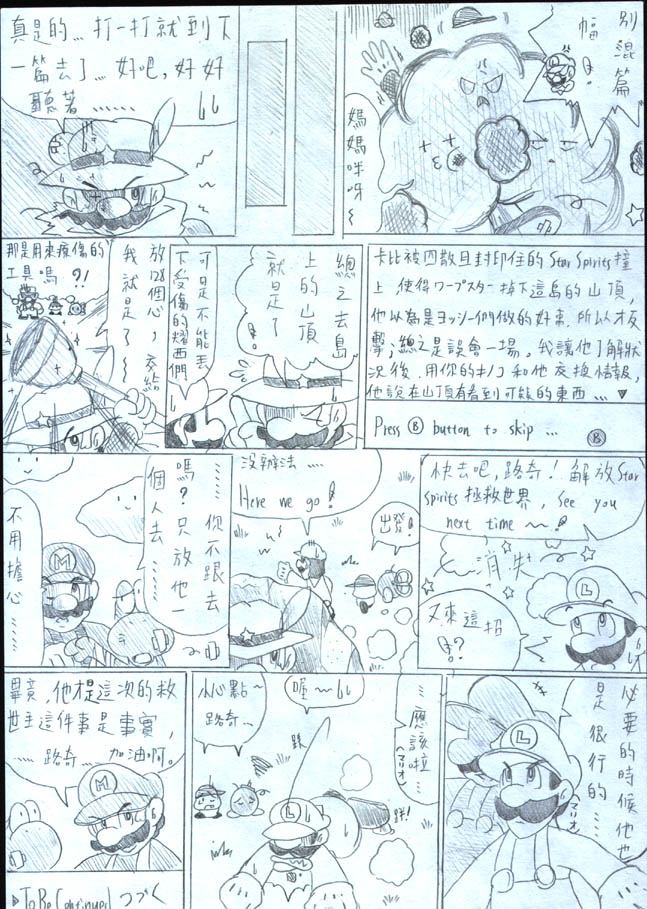 別混篇
幅!!
媽媽咪呀~
真是的…打一打就到下
一篇去了…好吧,好好
聽著……
卡比被四散且封印住的Star Spirits撞
上,使得ワープスター掉下這島的山頂,
他以為是ヨッシー們做的好事,所以才反
擊;總之是誤會一場。我讓他了解狀
況後,用你的キノコ和他交換情報,
他說在山頂有看到可疑的東西…▼
Press Ⓑ button to skip … Ⓑ
總之去島
上的山頂
就是了!
可是不能丟
下受傷的耀西們
放128個心,交給
我就是了~
那是用來療傷的
工具嗎?!
快去吧,路奇!解放Star
Spirits拯救世界, See you
next time ~!
消失
又來這招
!?
L
出發!
沒辦法….
Here we go!
……你不跟去
嗎?只放他一
個人去……
不用擔心……
M
必要的時候他也
是很行的…
(マリオ)
L
…應該啦…
(マリオ)
喔~
小心點~
路奇…
L
畢竟,他才是這次的救
世主這件事是事實,
……路奇…加油啊。
M
▶To Be Continued つづく